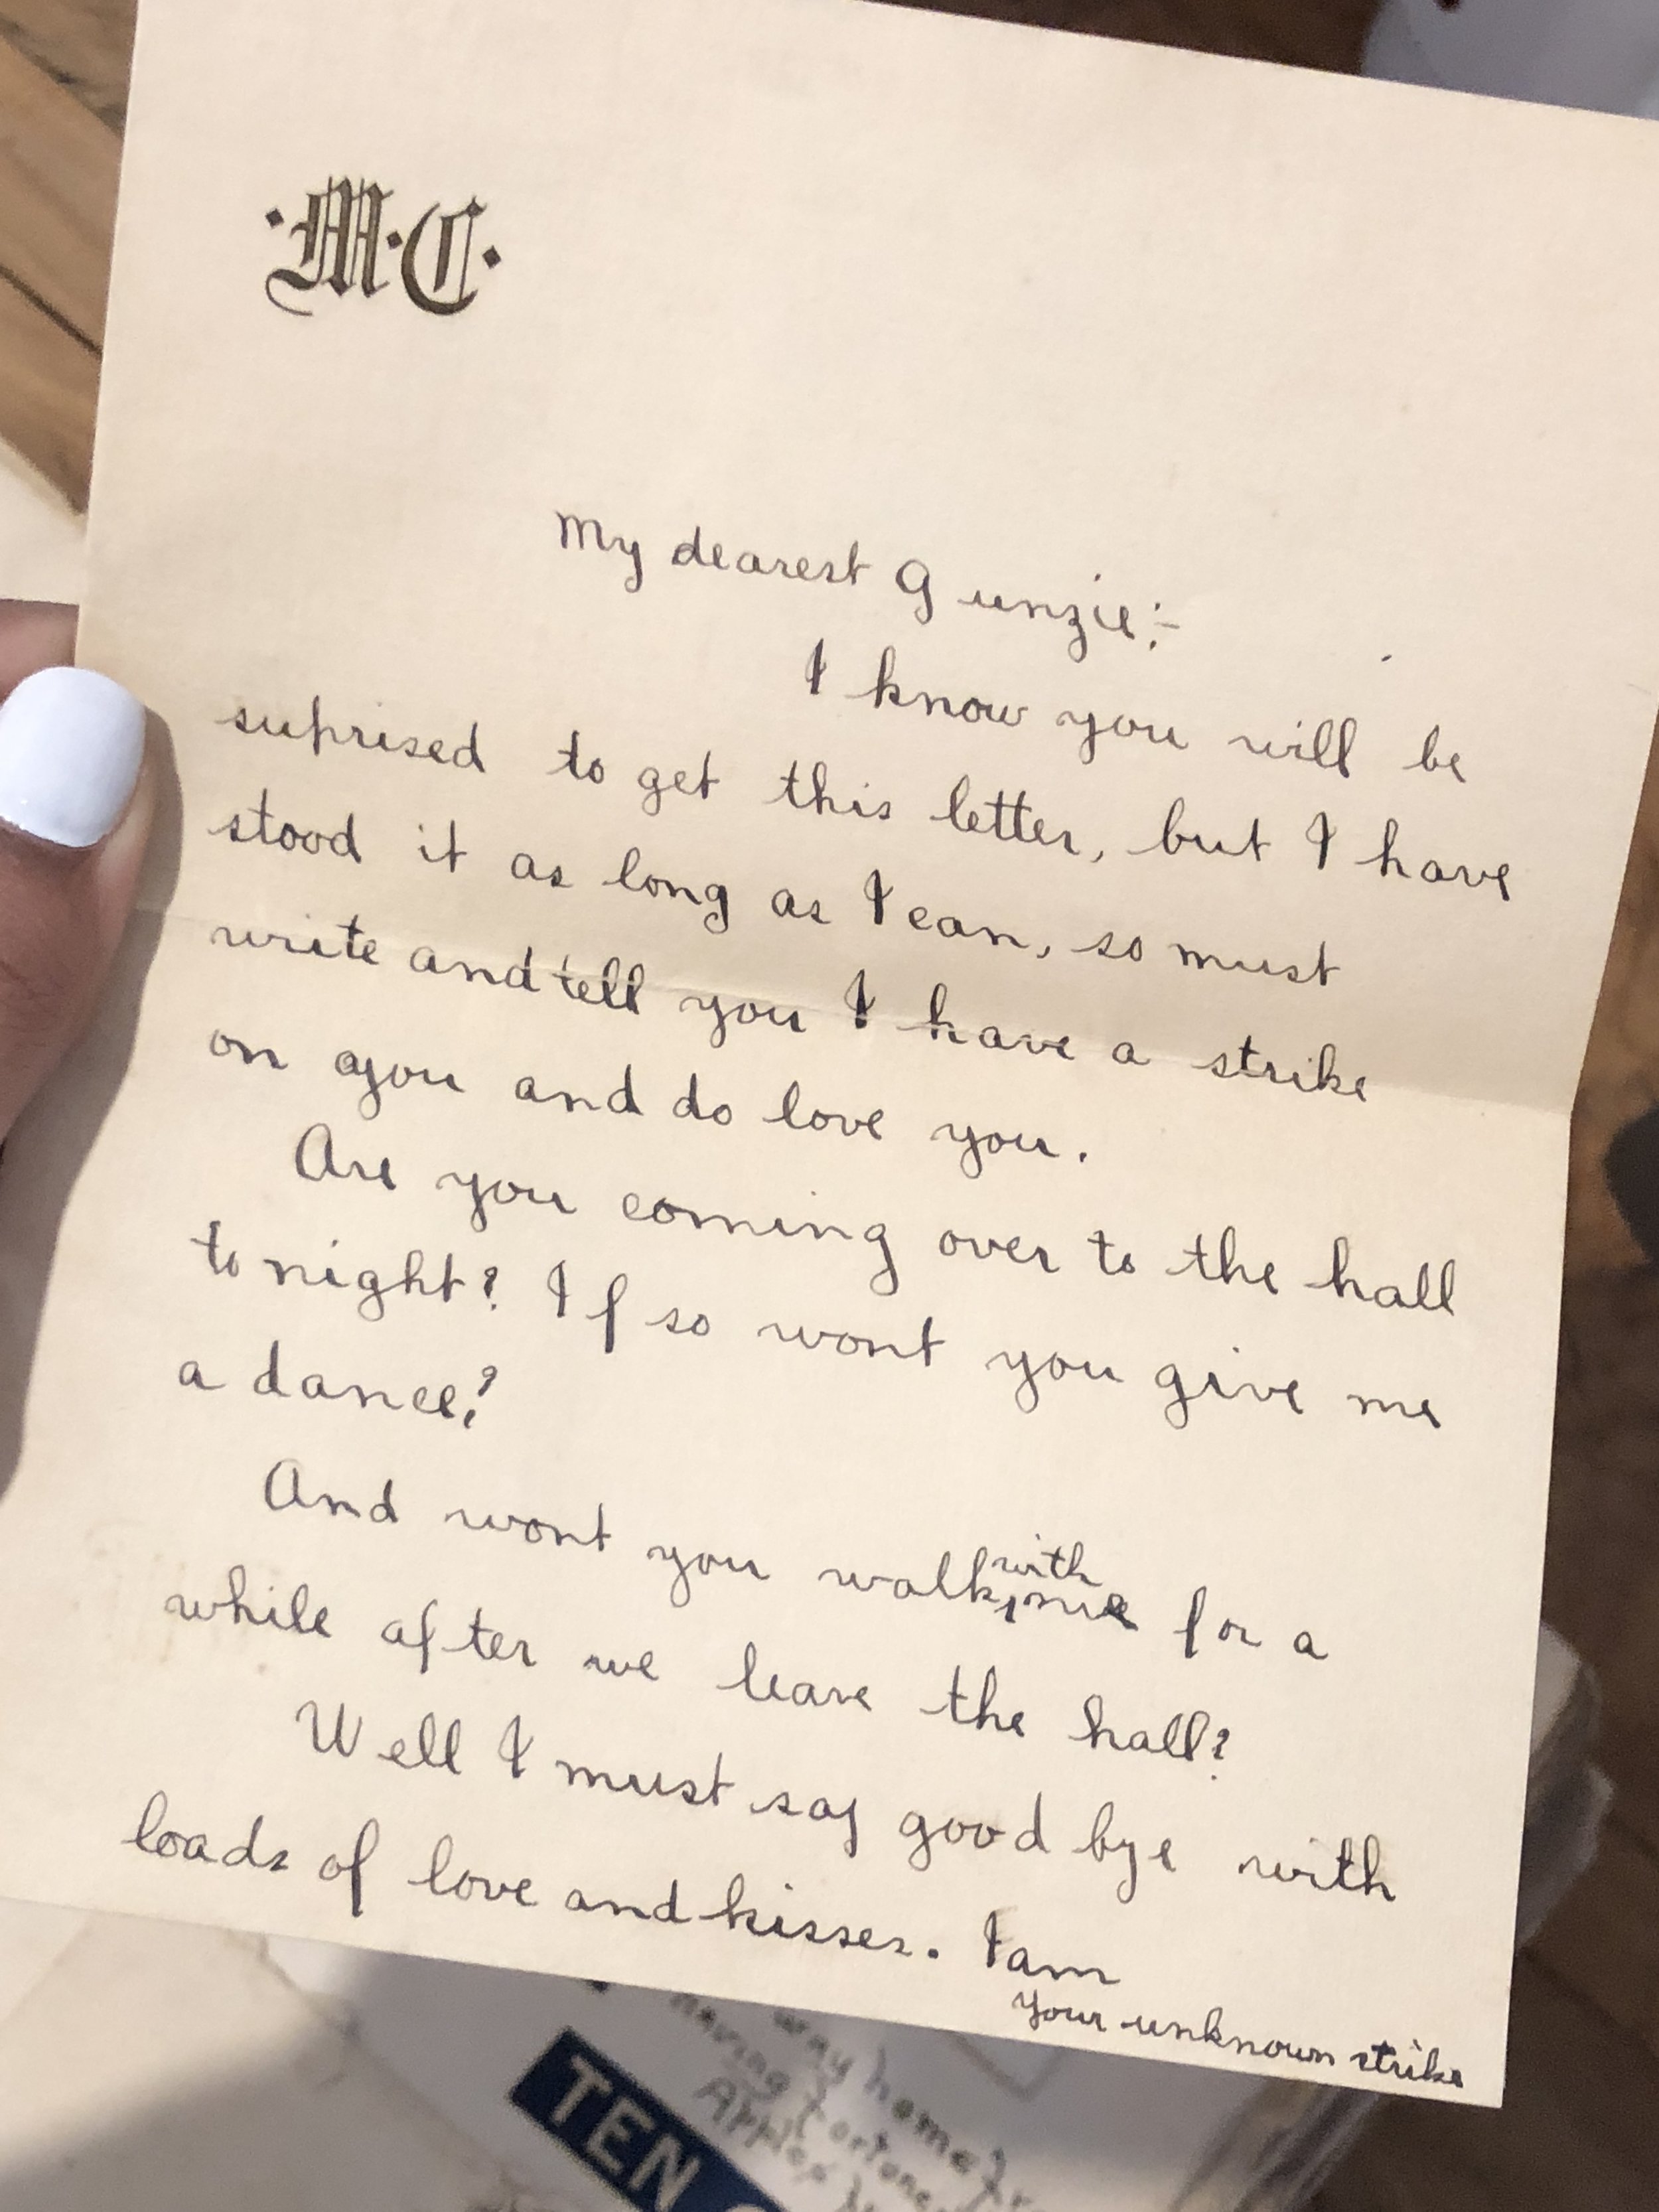 ·M·C·
My dearest Gunzie:-
I know you will be
suprised to get this letter, but I have
stood it as long as I can, so must
write and tell you I have a strike
on you and do love you.
Are you coming over to the hall
to night? If so wont you give me
a dance?
And wont you walk with me for a
while after we leave the hall?
Well I must say good bye with
loads of love and kisses. I am
Your unknown strike
way home
having
TEN